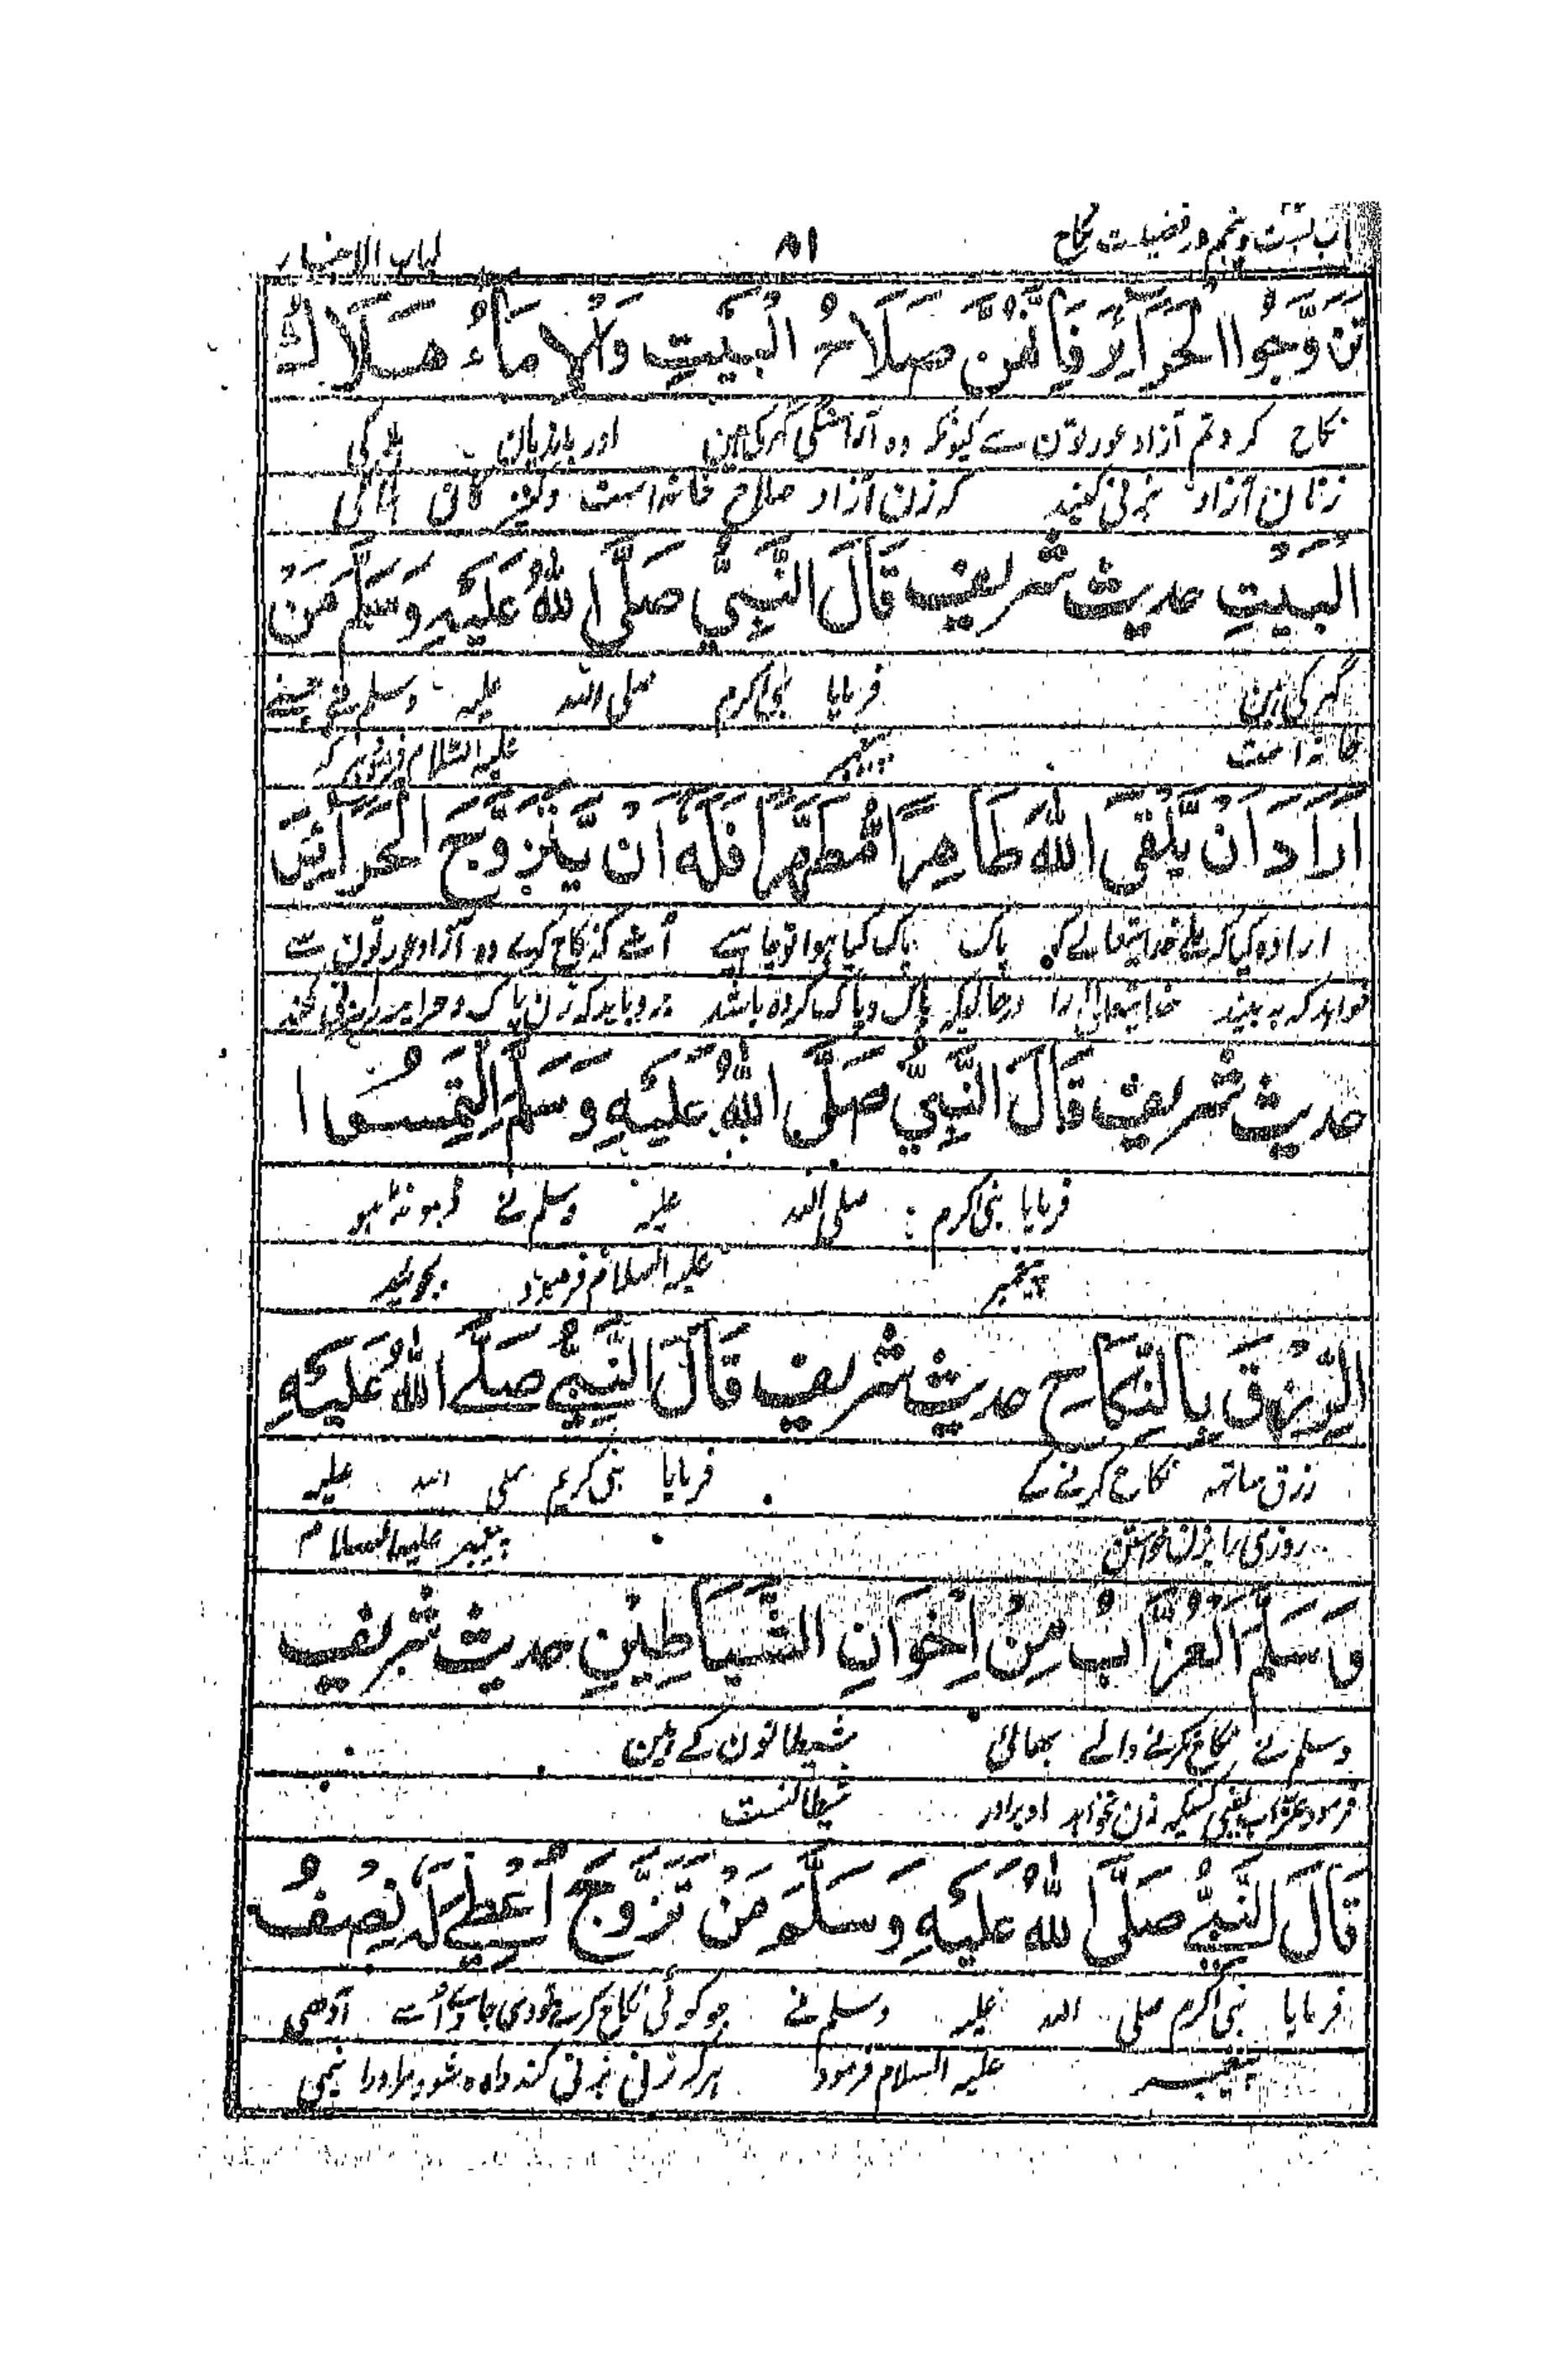 باب بست و پنجم در فضیلت نکاح ۸۱ لباب الاخبار
تَزَوَّجُوا الْحَرَآئِرَ فَاِنَّهُنَّ صَلَاحُ الْبَيْتِ وَالْاِمَآءُ هَلَاكُ
نکاح کر و تم آزاد عورتون سے کیونکہ وہ آراستگی گہر کی ہین اور باندیان
زنان آزاد بزنی کنید کہ زن آزاد صلاح خانہ است
الْبَيْتِ حدیث شریف قَالَ النَّبِيُّ صَلَّى اللهُ عَلَيْهِ وَسَلَّمَ مَنْ
گہر کی ہین فرمایا نبی اکرم صلی اللہ علیہ وسلم نے جسنے
خانہ است پیغمبر علیہ السلام فرمود ہر کہ
اَرَادَ اَنْ يَّلْقَى اللهَ طَاهِرًا مُّطَهَّرًا فَلَهٗ اَنْ يَّتَزَوَّجَ الْحَرَآئِرَ
ارادہ کیا کہ ملے خدایتعالے کو پاک پاک کیا ہوا تو چاہیے اُسے کہ نکاح کرے وہ آزاد عورتون سے
خواہد کہ بہ بیند خدایتعالی را درحالیکہ پاک و پاک کردہ باشد پس او باید کہ زن پاک و حرایر را بزنی کند
حدیث شریف قَالَ النَّبِيُّ صَلَّى اللهُ عَلَيْهِ وَسَلَّمَ الْتَمِسُوا
فرمایا نبی اکرم صلی اللہ علیہ وسلم نے ڈہونڈہو
پیغمبر علیہ السلام فرمود بجوئید
الرِّزْقَ بِالنِّكَاحِ حدیث شریف قَالَ النَّبِيُّ صَلَّے اللهُ عَلَيْهِ
رزق ساتہہ نکاح کرنے کے فرمایا نبی کریم صلی اللہ علیہ
روزی را بزن خواستن پیغمبر علیہ السلام
وَسَلَّمَ الْعُزَّابُ مِنْ اِخْوَانِ الشَّيَاطِيْنِ حدیث شریف
وسلم نے نکاح نکرنے والے بھائی شیطانون کے ہین
فرمود عزاب یعنی کسیکہ زن نخواہد او برادر شیطانست
قَالَ النَّبِيُّ صَلَّى اللهُ عَلَيْهِ وَسَلَّمَ مَنْ تَزَوَّجَ اُعْطِيَ لَهٗ نِصْفُ
فرمایا نبی اکرم صلی اللہ علیہ وسلم نے جو کوئی نکاح کرے تو دی جاوے اُسے آدھی
پیغمبر علیہ السلام فرمود ہر کہ زنی بزنی کند دادہ شود مر او را نیمی